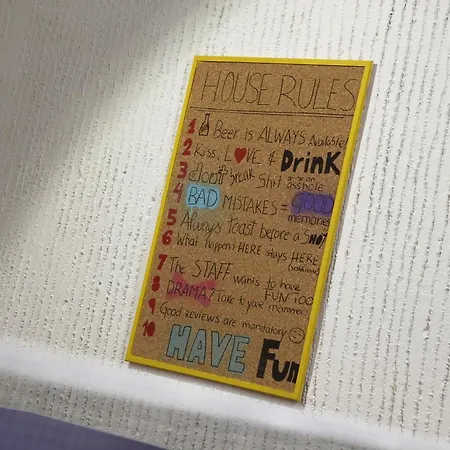 HOUSE RULES
1 Beer is ALWAYS Available!
2 Kiss, L♥VE & DrinK
3 Don't break Shit or be an asshole
4 BAD MISTAKES = GOOD memories
5 Always toast before a SHOT
6 What happens HERE stays HERE
7 The STAFF wants to have FUN TOO
8 DRAMA? Take to your mamma
9 Good reviews are mandatory ☺
10 HAVE Fun